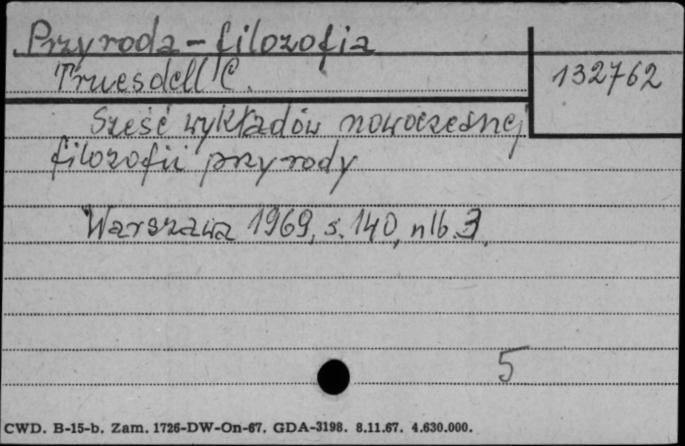 Przyroda - filozofia
Truesdell C.
132762
Sześć wykładów nowoczesnej
filozofii przyrody
Warszawa 1969, s. 140, nlb. 3.
5
CWD. B-15-b. Zam. 1726-DW-On-67. GDA-3198. 8.11.67. 4.630.000.